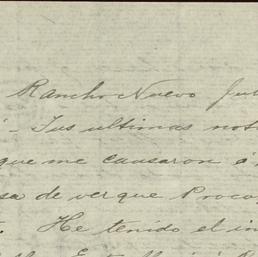 Rancho Nuevo Ju
Tus ultimas not
que me causaron
sa de ver que Proco
He tenido el in